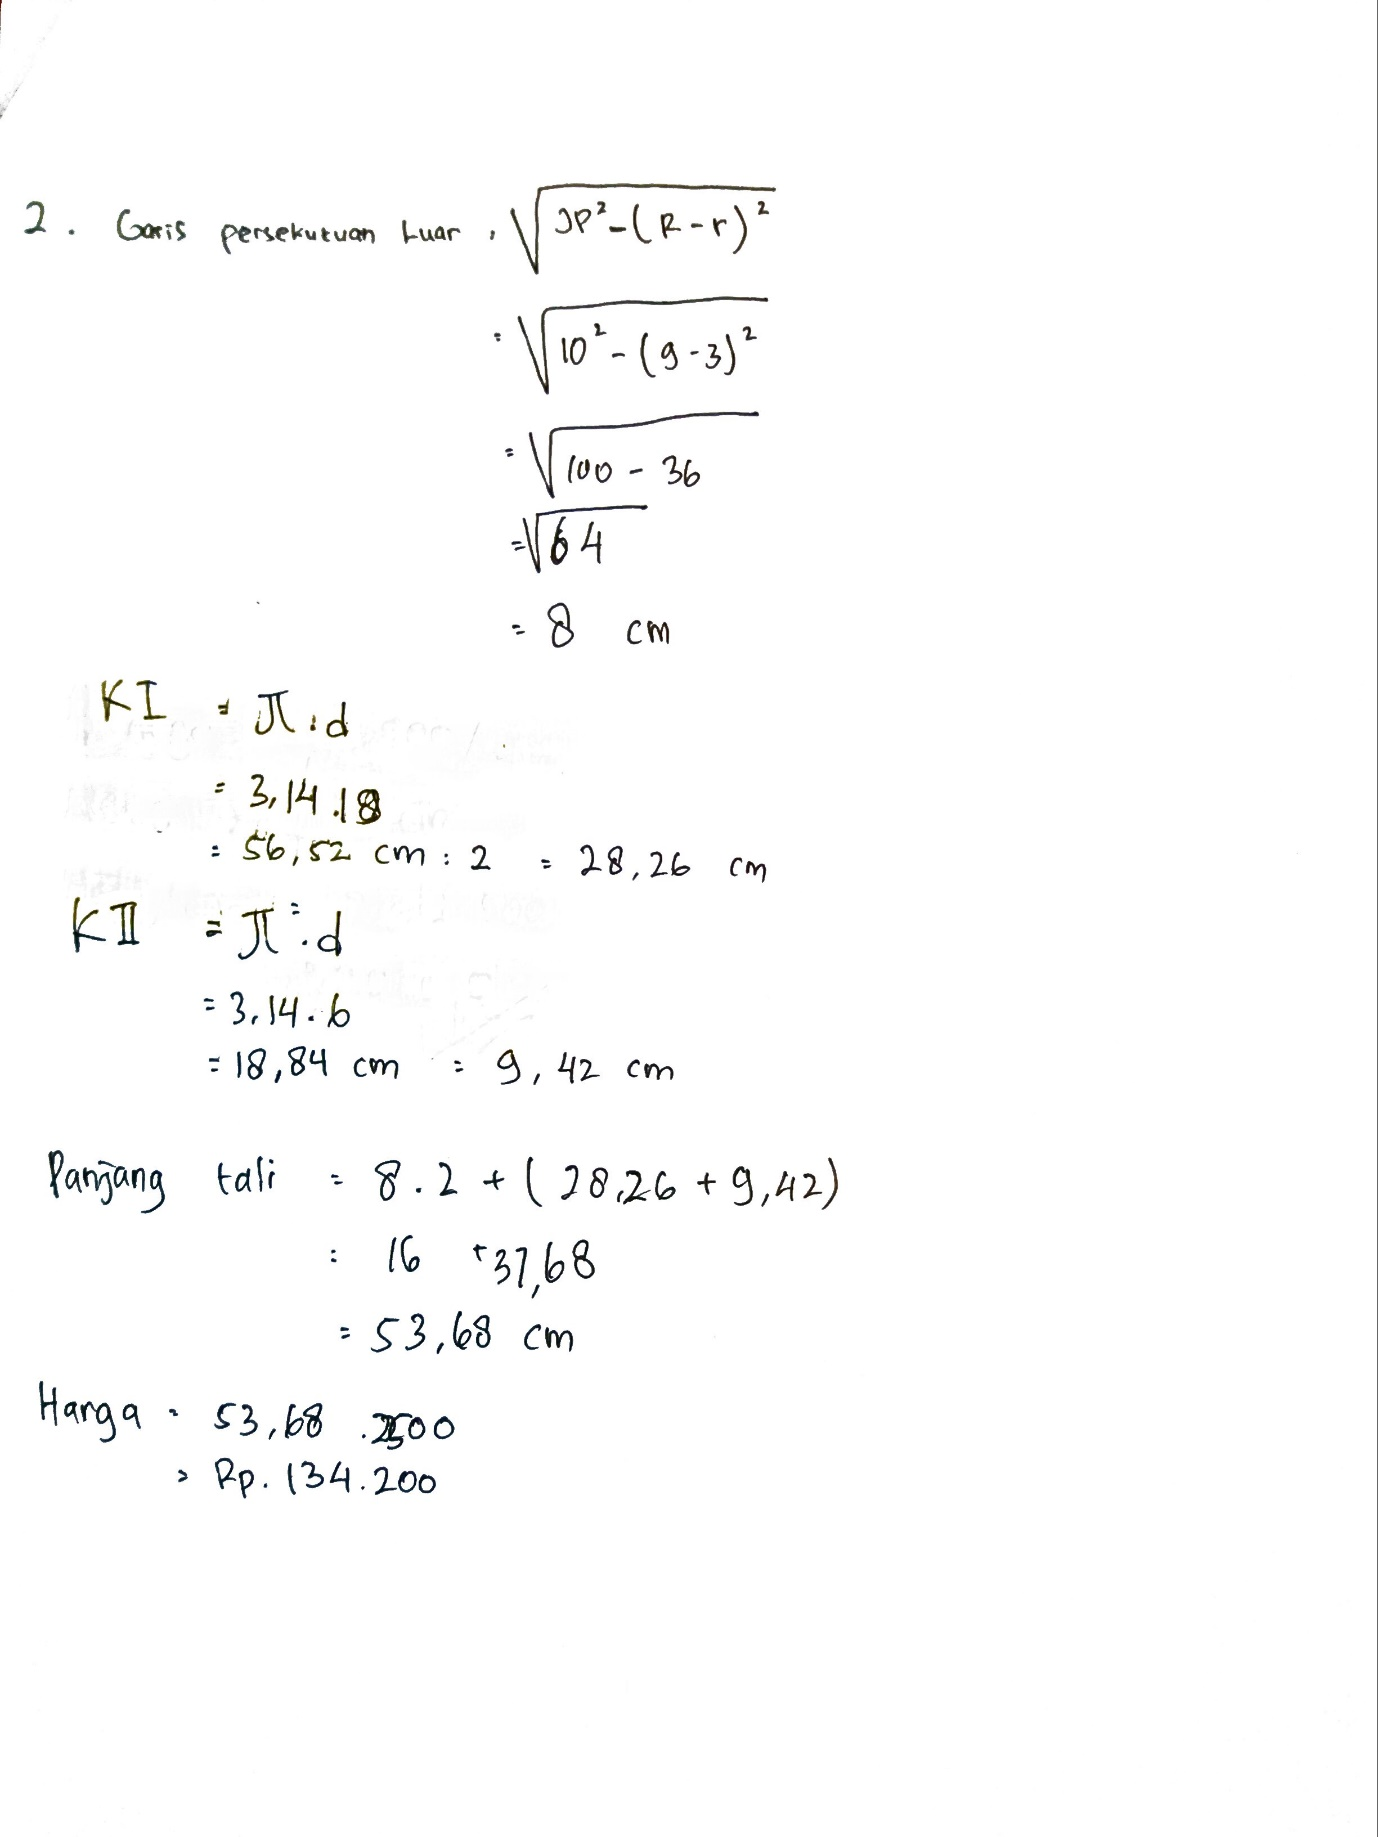 2. Garis persekutuan Luar = √JP² - (R - r)²
= √10² - (9 - 3)²
= √100 - 36
= √64
= 8 cm
KI = π . d
= 3,14 . 18
= 56,52 cm : 2 = 28,26 cm
KII = π . d
= 3,14 . 6
= 18,84 cm = 9,42 cm
Panjang tali = 8 . 2 + (28,26 + 9,42)
= 16 + 37,68
= 53,68 cm
Harga = 53,68 . 2500
= Rp. 134.200